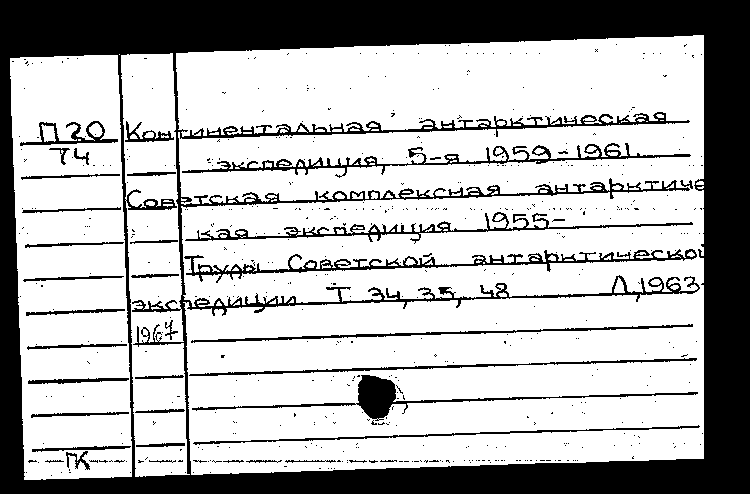 П20 Континентальная антарктическая
Т4 экспедиция, 5-я. 1959-1961.
Советская комплексная антарктиче
кая экспедиция. 1955-
Труды Советской антарктической
экспедиции. Т 34, 35, 48 Л, 1963-
1967
ПК